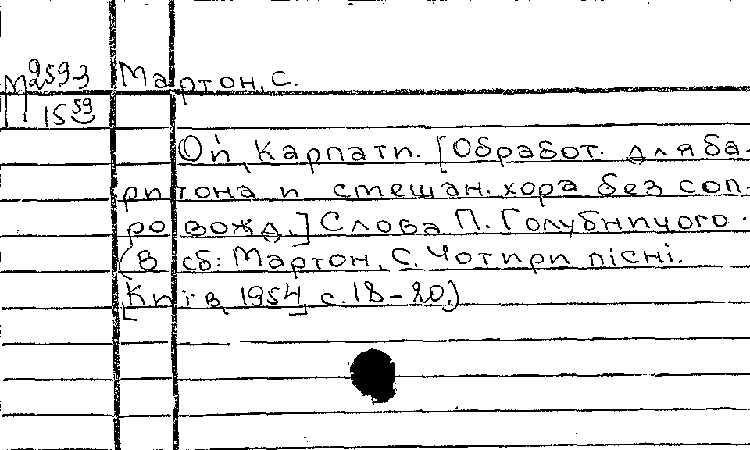 М 259-3 Мартон, С.
15 59
Ой, Карпати. [Обработ. для ба-
ритона и смешан. хора без соп-
ровожд.] Слова П. Голубничого.
(В сб: Мартон, С. Чотири пісні.
[Київ, 1954] с. 18-20.)